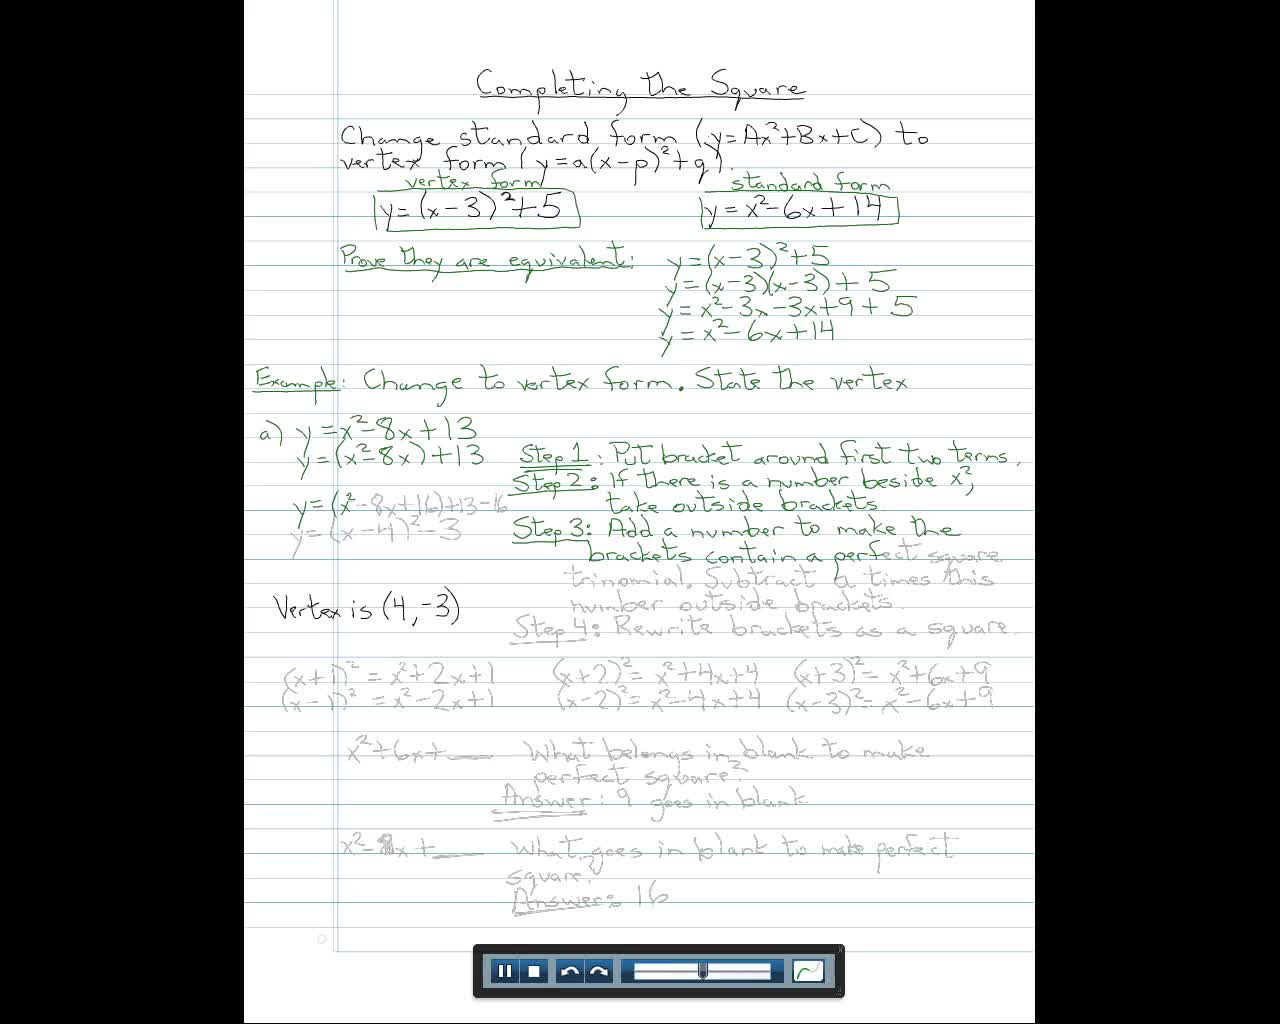 Completing the Square
Change standard form (y=Ax²+Bx+C) to
vertex form (y=a(x-p)²+q).
vertex form
standard form
y=(x-3)²+5
y=x²-6x+14
Prove they are equivalent:
y=(x-3)²+5
y=(x-3)(x-3)+5
y=x²-3x-3x+9+5
y=x²-6x+14
Example: Change to vertex form. State the vertex
a) y=x²-8x+13
y=(x²-8x)+13
y=(x²-8x+16)+13-16
y=(x-4)²-3
Vertex is (4,-3)
Step 1: Put bracket around first two terms.
Step 2: If there is a number beside x²,
take outside brackets
Step 3: Add a number to make the
brackets contain a perfect square
trinomial. Subtract a times this
number outside brackets.
Step 4: Rewrite brackets as a square.
(x+1)²=x²+2x+1 (x+2)²=x²+4x+4 (x+3)²=x²+6x+9
(x-1)²=x²-2x+1 (x-2)²=x²-4x+4 (x-3)²=x²-6x+9
x²+6x+__ What belongs in blank to make
perfect square?
Answer: 9 goes in blank
x²-8x+__ What goes in blank to make perfect
square?
Answer: 16